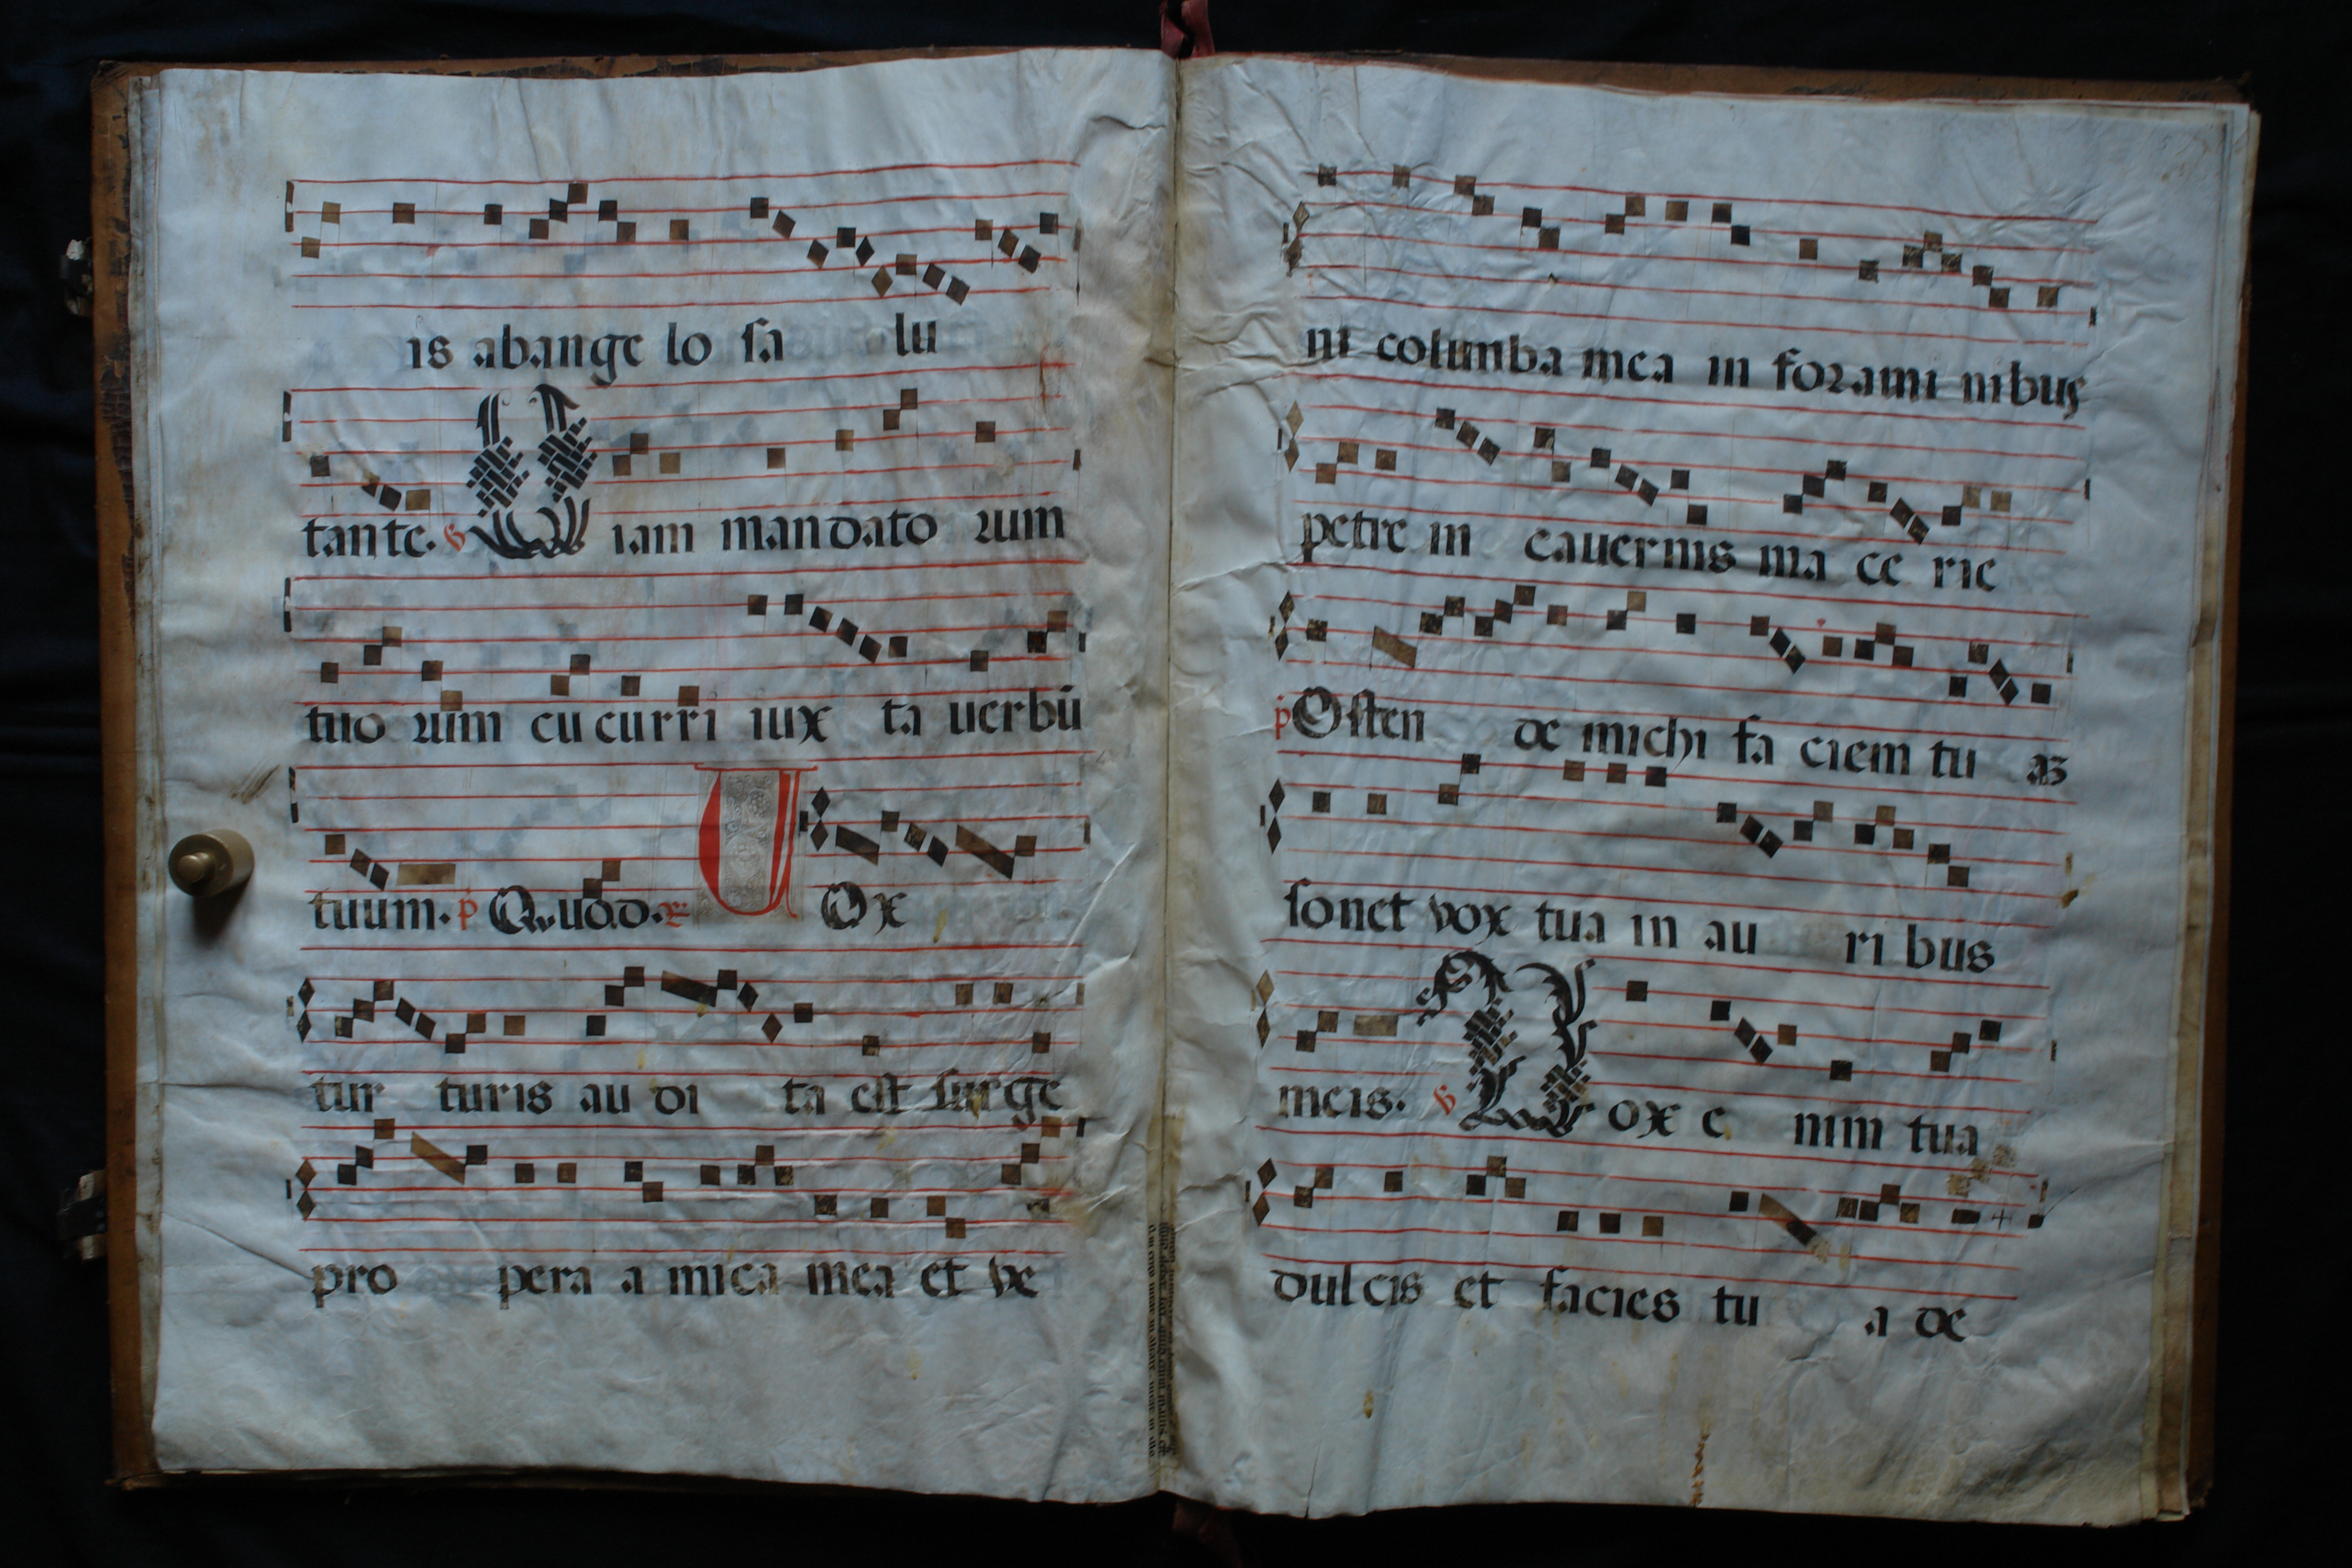 is abange lo sa lu
tante. ỽ Uiam mandato rum
tuo rum cu curri iux ta uerbū
tuum. p Quod. r̃ UOx
tur turis au di ta est surge
pro pera a mica mea et ve
ni columba mea in forami nibus
petre in cauernis ma ce rie
p Osten de michi fa ciem tu aʒ
sonet vox tua in au ri bus
meis. ỽ Uox e nim tua
dulcis et facies tu a de